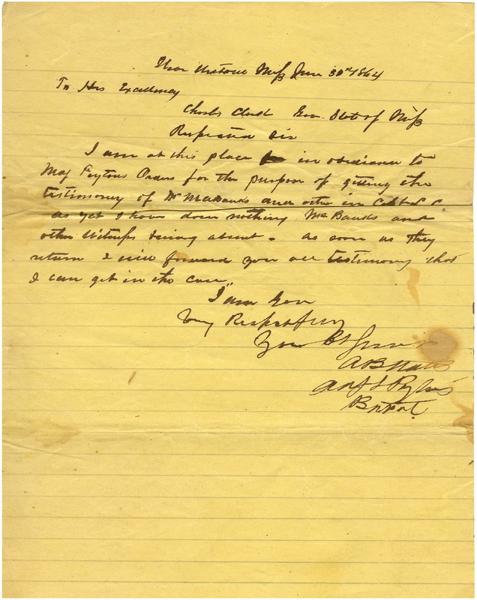 Miss June 30th 1864
To His Excellency
Charls Clark Gov. State of Miss
Respected Sir
I am at this place in obediance to
Maj Peytons Orders for the purpose of getting the
testimony of Mr McBanks and others in
as yet I have done nothing McBanks and
other Witness being absent. as soon as they
return I will forward you all testimony that
I can get in the case,
I am Gov
Very Respectfully
Your Obt
A B
Adjt